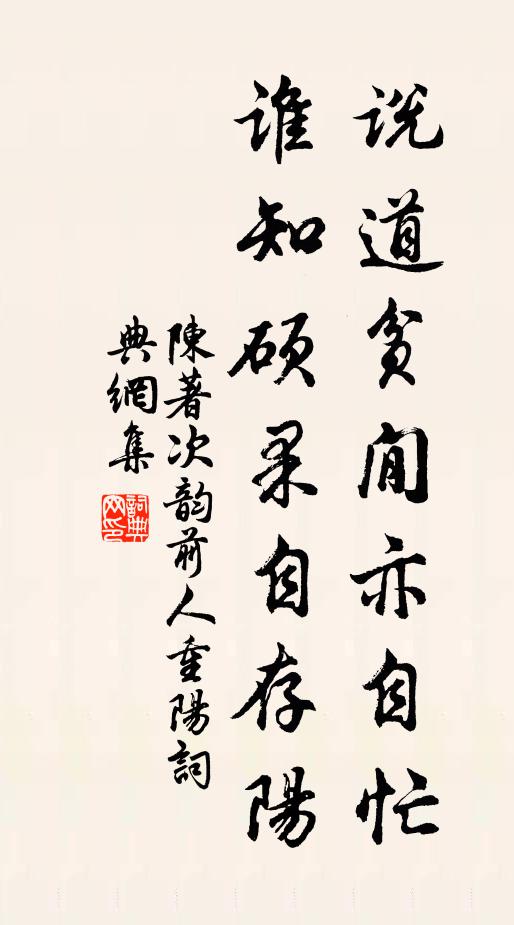 说道贫閒亦自忙
谁知硕果自存陽
陳著次韵前人重陽詞
典網集
詞典网印